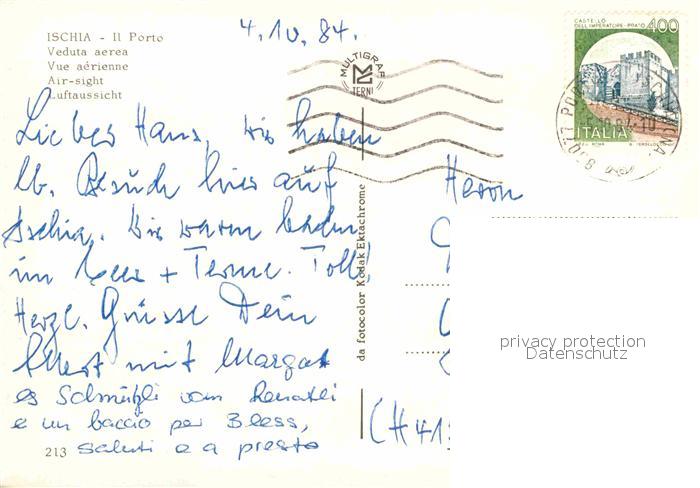 ISCHIA - Il Porto
Veduta aerea
Vue aérienne
Air-sight
Luftaussicht
4.10.84.
MULTIGRAF
TERNI
CASTELLO
DELL'IMPERATORE-PRATO 400
ITALIA
Lieber Hans, wir haben
lb. Besuch hier auf
Ischia. Wir waren baden
im Meer + Terme. Toll!
Herzl. Grüsse Dein
Albert mit Margat
es Schmützli vom Renatli
e un baccio per Bless,
saluti e a presto
213
da fotocolor Kodak Ektachrome
Herrn
(CH 41
privacy protection
Datenschutz